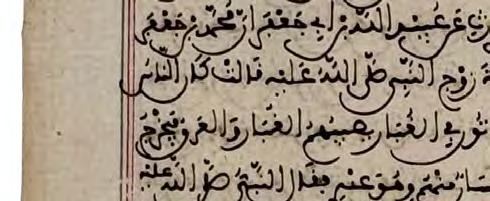 عن عبيد الله بن ابي جعفر ان محمد بن جعفر
زوج النبي صلى الله عليه قالت كان الناس
في الغبار يصيبهم الغبار والعرق فيخرج
منهم وهو عندي فقال النبي صلى الله عليه